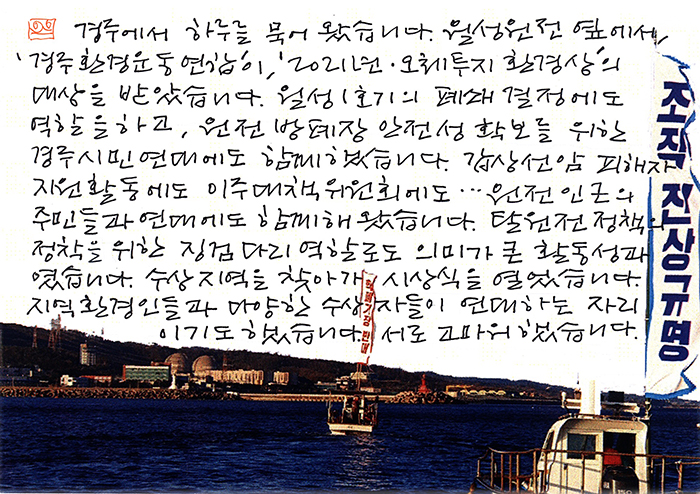 경주에서 하루를 묵어 왔습니다. 월성원전 옆에서,
'경주환경운동연합'이, '2021년·오체투지 환경상'의
대상을 받았습니다. 월성1호기의 폐쇄 결정에도
역할을 하고, 원전 방폐장 안전성 확보를 위한
경주시민연대에도 함께 했습니다. 갑상선암 피해자
지원활동에도 이주대책위원회에도 … 원전 인근의
주민들과 연대에도 함께해 왔습니다. 탈원전 정책의
정착을 위한 징검다리 역할로도 의미가 큰 활동성과
였습니다. 수상지역을 찾아가 시상식을 열었습니다.
지역환경인들과 다양한 수상자들이 연대하는 자리
이기도 했습니다. 서로 고마워했습니다.
조작 진상규명
핵폐기장 반대